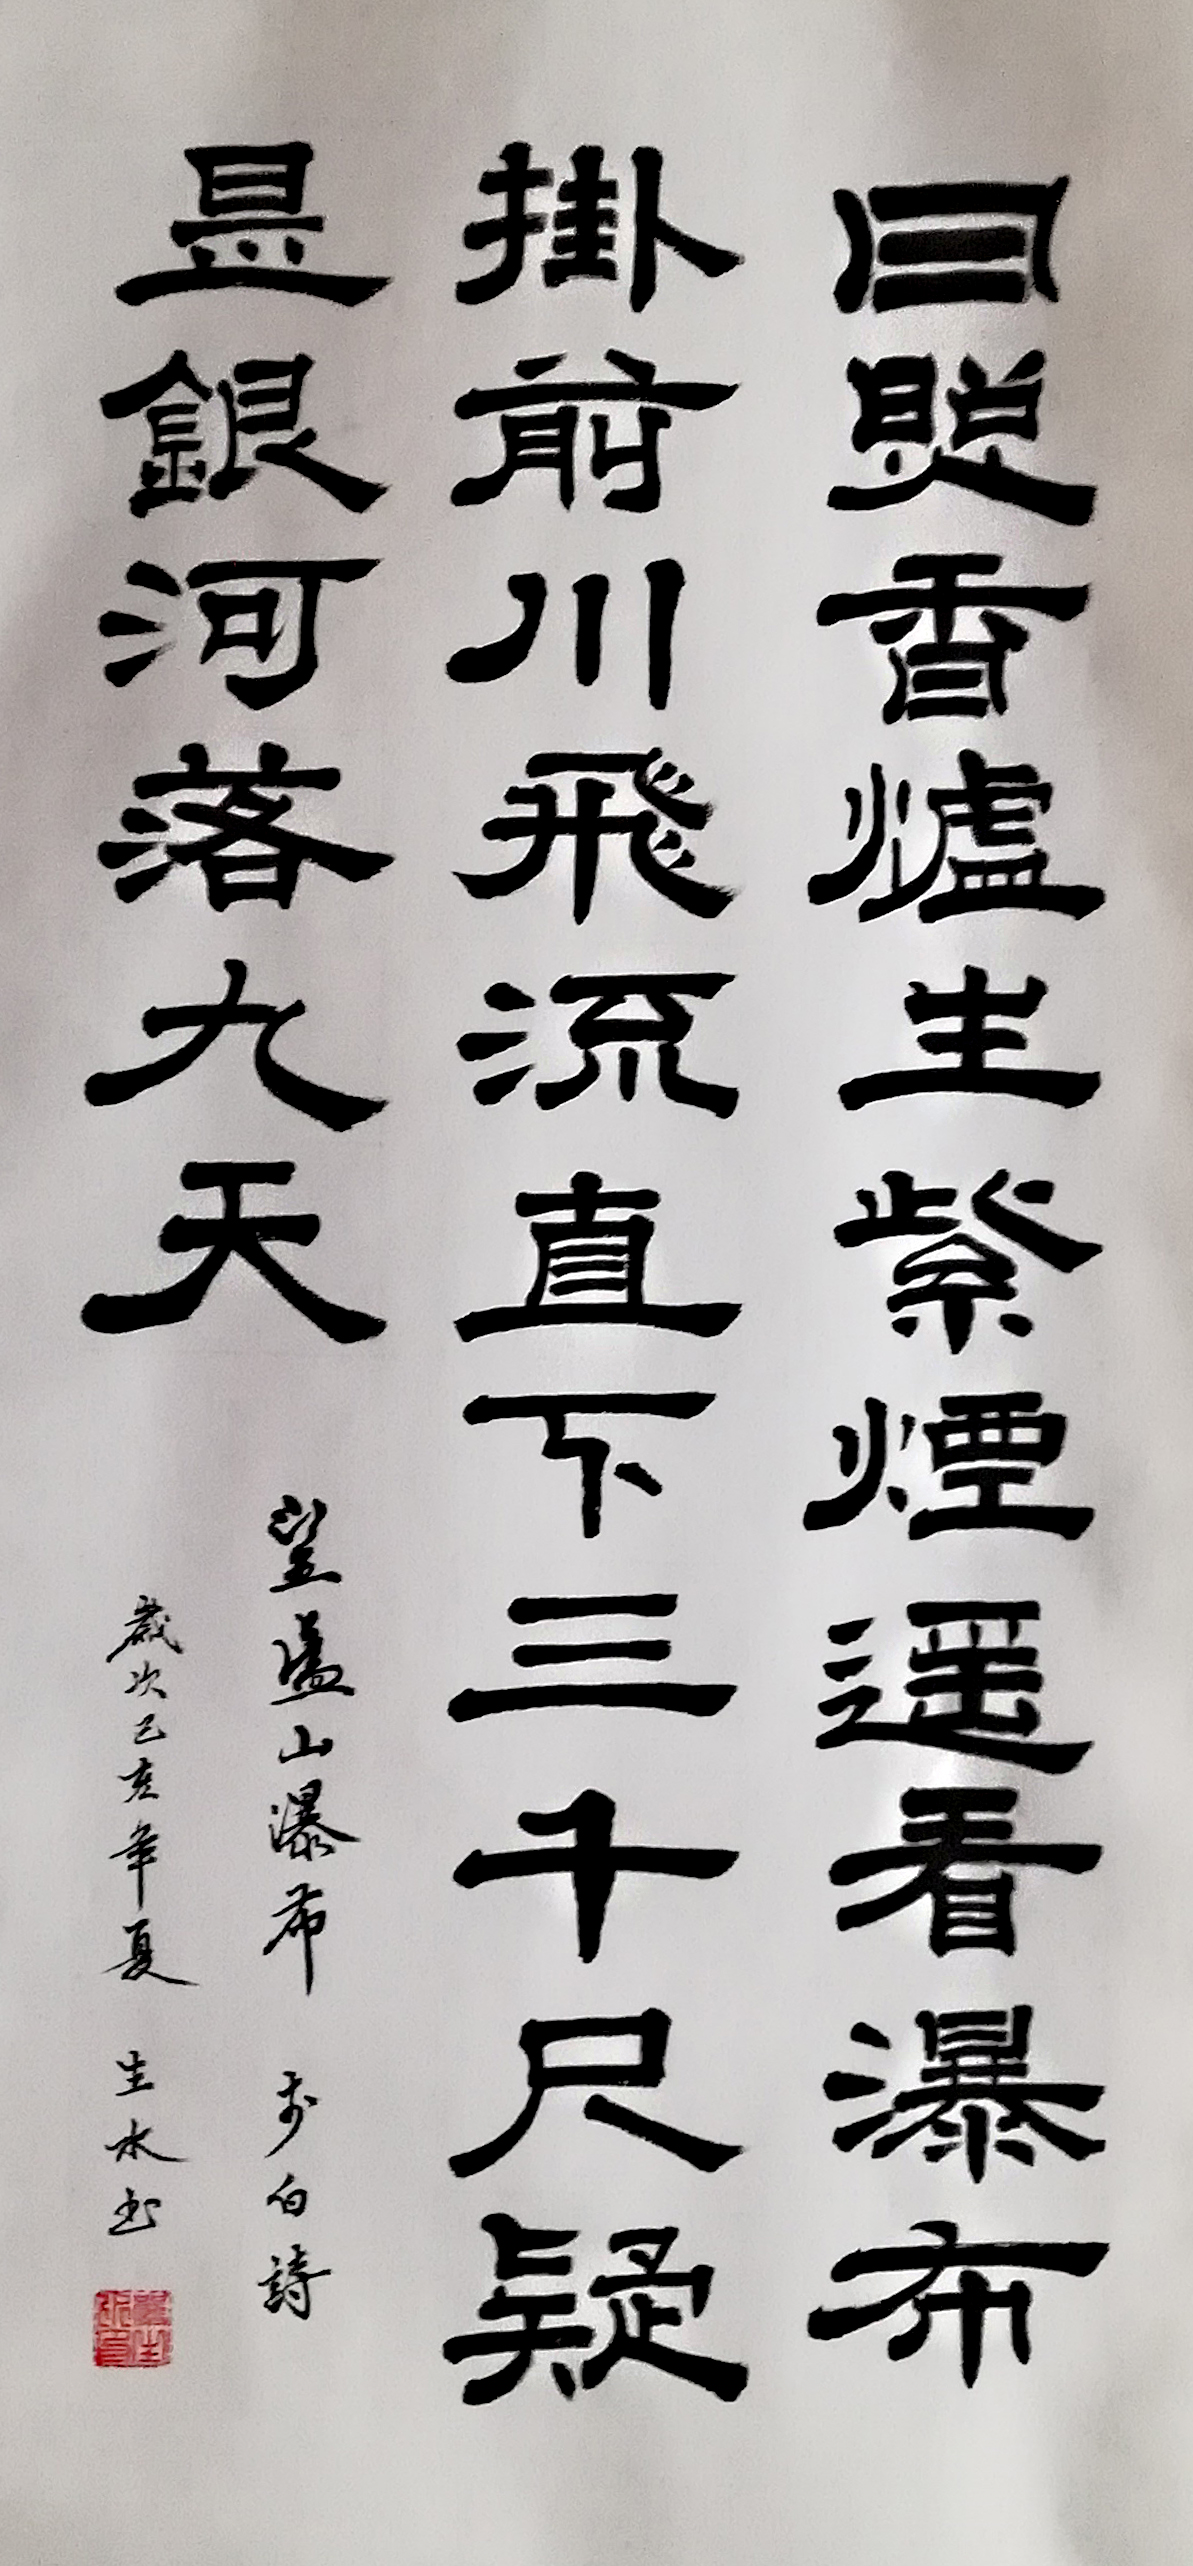 日照香爐生紫煙遥看瀑布
掛前川飛流直下三千尺疑
是銀河落九天
望廬山瀑布 李白詩
歲次己亥年夏 生水书